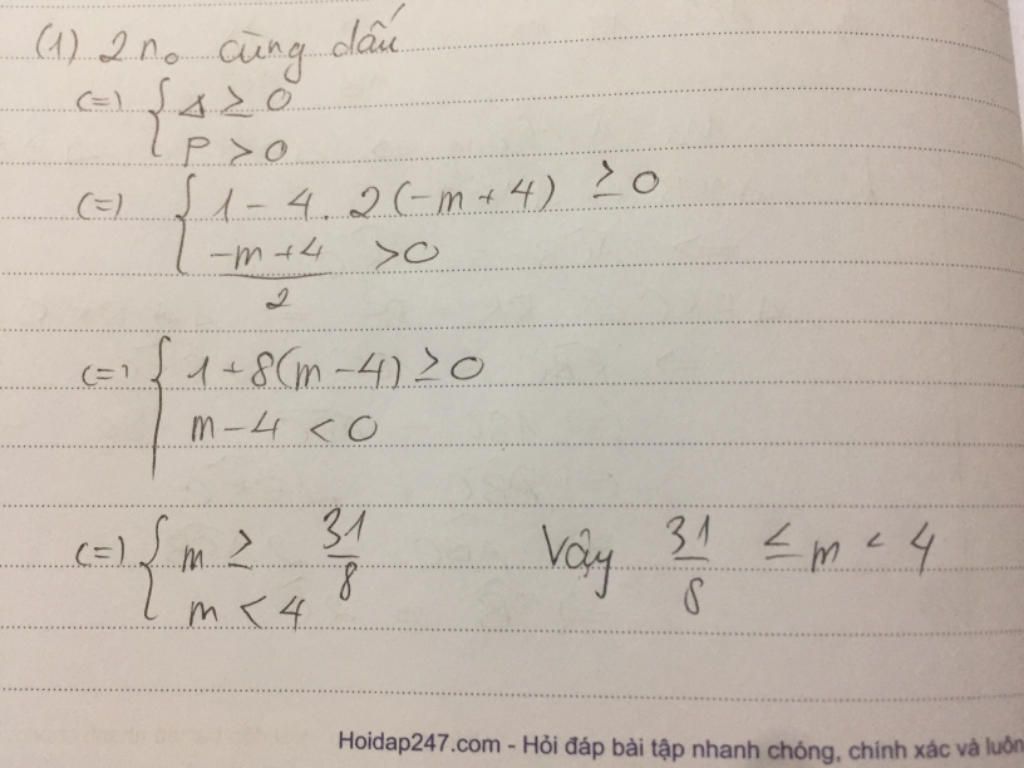 (1) 2 no cùng dấu
(=) { Δ ≥ 0
P > 0
(=) { 1 - 4. 2(-m + 4) ≥ 0
-m + 4 / 2 > 0
(=) { 1 + 8(m - 4) ≥ 0
m - 4 < 0
(=) { m ≥ 31/8 Vậy 31/8 ≤ m < 4
m < 4
Hoidap247.com - Hỏi đáp bài tập nhanh chóng, chính xác và luôn